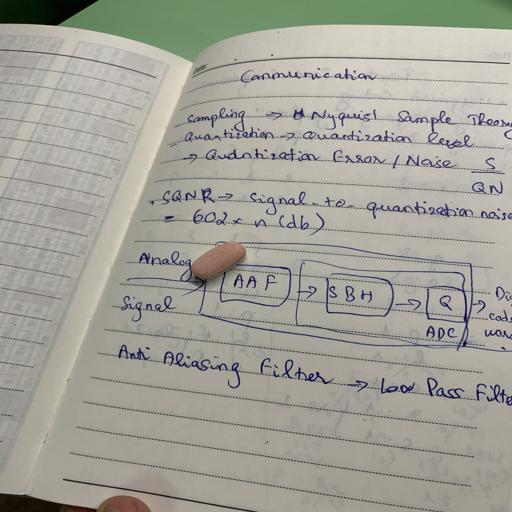 Communication
Sampling → Nyquist Sample Theory
Quantization → quantization level
→ Quantization Error / Noise S
QN
SQNR → signal-to-quantization noise
= 602 × n (db)
Analog
Signal
AAF → SBH → Q →
ADC
Anti Aliasing Filter → Low Pass Filte